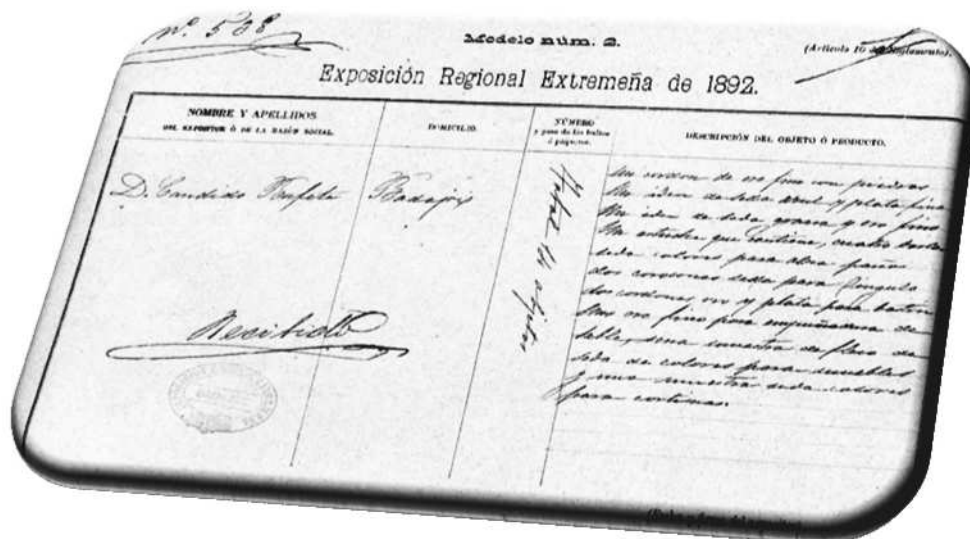 nº. 508
Modelo núm. 2.
(Artículo 10 del Reglamento).
Exposición Regional Extremeña de 1892.
NOMBRE Y APELLIDOS
DEL EXPOSITOR Ó DE LA RAZÓN SOCIAL.
DOMICILIO.
NÚMERO
y peso de los bultos
ó paquetes.
DESCRIPCIÓN DEL OBJETO Ó PRODUCTO.
D. Candido
Badajoz
Total 14 objetos
Un cordon de oro fino con piedras
Un idem de seda azul y plata fina
Un idem de seda grana y oro fino
Un estuche que contiene, cuatro
seda colores para
dos cordones seda para cíngulo
dos cordones oro y plata para baston
Uno oro fino para empuñadura de
sable, una muestra de fleco de
seda de colores para muebles
y una muestra seda colores
para cortinas.
Recibido